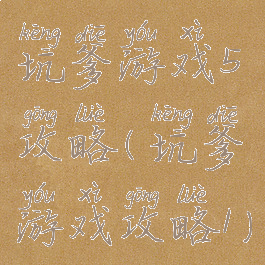 hēng diē yóu xì
坑爹游戏5
gōng lüè hēng diē
攻略(坑爹
yóu xì gōng lüè
游戏攻略1)